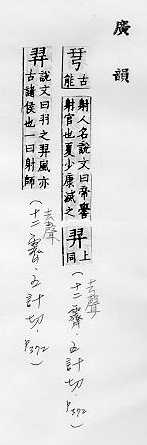 廣韻
芎 古能
射人名說文曰帝嚳射官也夏少康滅之 羿 上同
去聲
(十二霽．五計切．P372)
羿 說文曰羽之羿風亦古諸侯也一曰射師
去聲
(十二霽．五計切．P372)